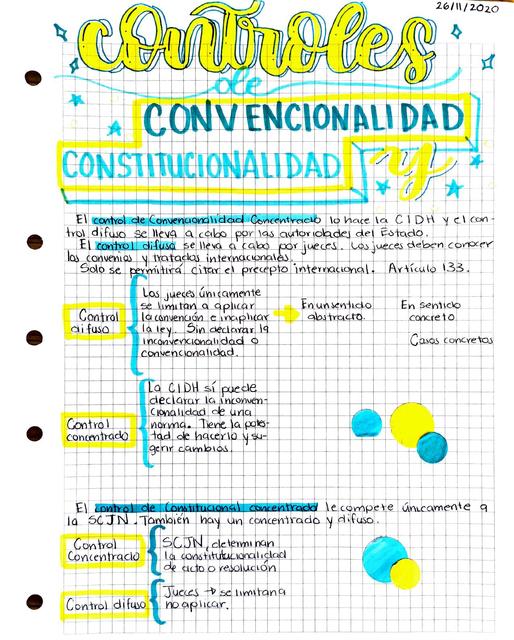 26/11/2020
controles
de
CONVENCIONALIDAD
CONSTITUCIONALIDAD y
El control de Convencionalidad Concentrado lo hace la CIDH y el con-
trol difuso se lleva a cabo por las autoridades del Estado.
El control difuso se lleva a cabo por jueces. Los jueces deben conocer
los convenios y tratados internacionales.
Solo se permitirá citar el precepto internacional. Artículo 133.
Control
difuso
Los jueces únicamente
se limitan a aplicar
la convención e inaplicar
la ley. Sin declarar la
inconvencionalidad o
convencionalidad.
En un sentido
abstracto.
En sentido
concreto
Casos concretos
Control
concentrado
La CIDH sí puede
declarar la inconven-
cionalidad de una
norma. Tiene la potes-
tad de hacerlo y su-
gerir cambios.
El control de Constitucional concentrado le compete únicamente a
la SCJN. También hay un concentrado y difuso.
Control
Concentracio
SCJN, determinan
la constitutucionalidad
de acto o resolución
Control difuso
Jueces → se limitan a
no aplicar.